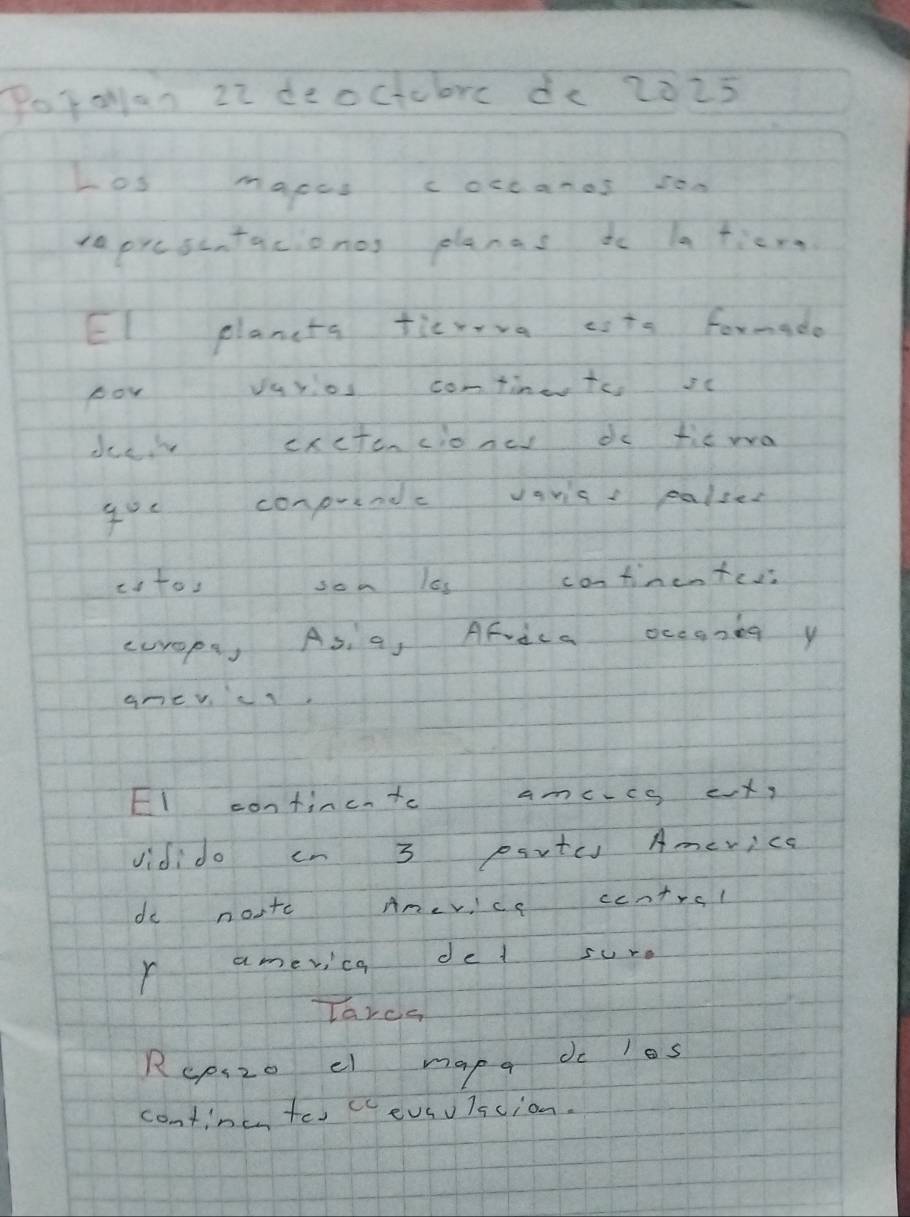 Popallan 22 de octubre de 2025
Los mapas e occanos son
representacionos planas de la tierra.
El planeta tierrra esta formado
por varios continentes se
decir exctenciones de tierra
que conprende varias paises
estos son los continentes:
europa, Asia, Africa occania y
america.
El continente amerca esta
vidido en 3 partes America
de norte America central
y america del sur.
Tarea
Repazo el mapa de los
continentes "evaulacion.